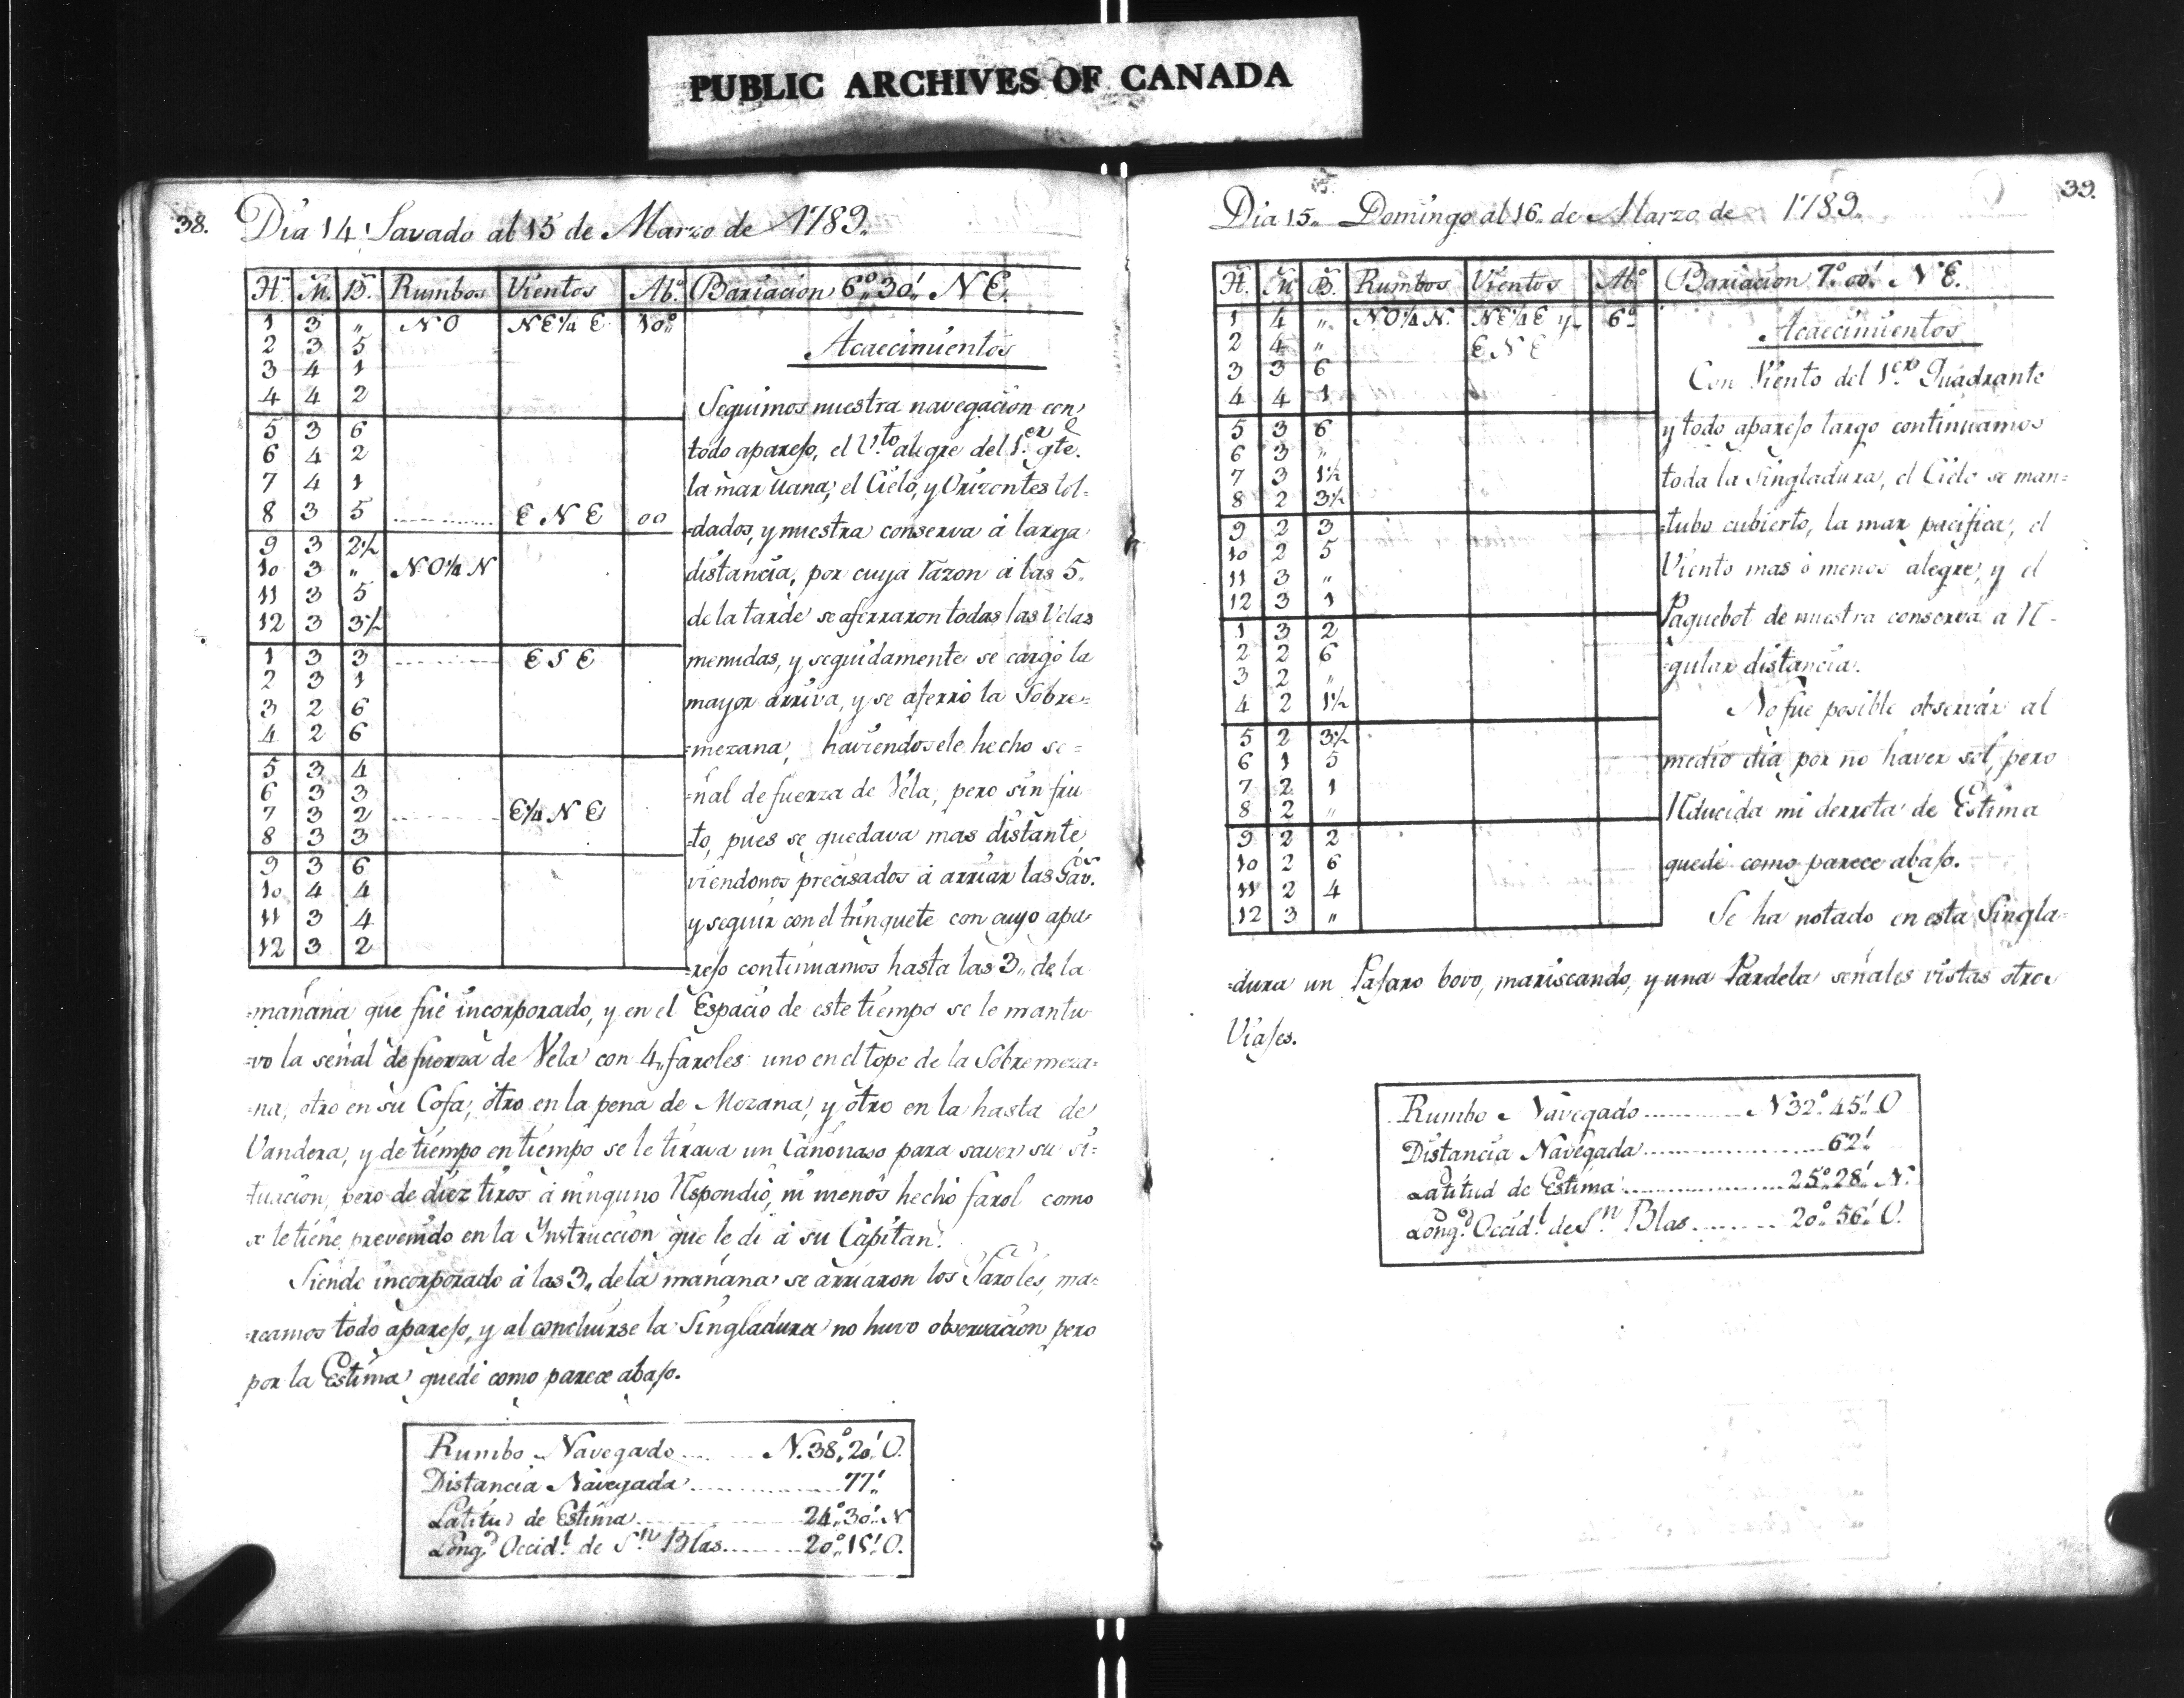 PUBLIC ARCHIVES OF CANADA
38. Dia 14 Savado al 15 de Marzo de 1789.,
H. M. B. Rumbos Vientos Ab.º Bariacion 6º,,30',, NE.
1 3 ,, NO NE¼E 10º
2 3 5
3 4 1
4 4 2
5 3 6
6 4 2
7 4 1
8 3 5 ............ ENE 00
9 3 2½
10 3 ,, NO¼N
11 3 5
12 3 3½
1 3 3 ............ ESE
2 3 1
3 2 6
4 2 6
5 3 4
6 3 3
7 3 2 ............ E¼NE
8 3 3
9 3 6
10 4 4
11 3 4
12 3 2
Acaecimientos
Seguimos nuestra navegacion con
todo aparejo, el V.to alegre del 1.er qte.
la mar llana, el Cielo, y Orizontes tol=
=dados, y nuestra conserva á larga
distancia, por cuya razon á las 5,,
de la tarde se aferraron todas las Velas
menudas, y seguidamente se cargó la
mayor arriva, y se aferró la Sobre=
=mezana, haviendosele hecho se=
=ñal de fuerza de Vela, pero sin fru
=to, pues se quedava mas distante,
viendonos precisados á arriar las Gav.s
y seguir con el trinquete con cuyo apa=
=rejo continuamos hasta las 3,, de la
=mañana que fué incorporado, y en el Espacio de este tiempo se le mantu
=vo la señal de fuerza de Vela con 4,, faroles uno en el tope de la Sobremeza=
=na, otro en su Cofa, otro en la pena de Mezana, y otro en la hasta de
Vandera, y de tiempo en tiempo se le tirava un Cañonaso para saver su si=
=tuacion, pero de diez tiros á ninguno Respondió, ni menos hechó farol como
se le tiene prevenido en la Ynstruccion que le di á su Capitan.
Siendo incorporado á las 3,, de la mañana se arriaron los Faroles, ma=
=reamos todo aparejo, y al concluirse la Singladura no huvo observacion pero
por la Estima quedé como parece abajo.
Rumbo Navegado ........ N.38º,,20' O.
Distancia Navegada ............ 77',,
Latitud de Estima ............ 24º,,30' N
Long.d Occid.l de S.n Blas ........ 20º,,15' O.
39.
Dia 15,, Domingo al 16,, de Marzo de 1789.,
H. M. B. Rumbos Vientos Ab.º Bariacion 7º,,00' NE.
1 4 ,, NO¼N. NE¼E y 6º
2 4 ,, ENE
3 3 6
4 4 1
5 3 6
6 3 ,,
7 3 1½
8 2 3½
9 2 3
10 2 5
11 3 ,,
12 3 1
1 3 2
2 2 6
3 2 ,,
4 2 1½
5 2 3½
6 1 5
7 2 1
8 2 ,,
9 2 2
10 2 6
11 2 4
12 3 ,,
Acaecimientos
Con Viento del 1.ero Quadrante
y todo aparejo largo continuamos
toda la Singladura, el Cielo se man=
=tubo cubierto, la mar pacifica, el
Viento mas ó menos alegre, y el
Paquebot de nuestra conserva a re=
=gular distancia.
No fue posible observar al
medio dia por no haver sol, pero
Reducida mi derrota de Estima
quedé como parece abajo.
Se ha notado en esta Singla=
=dura un Pajaro bovo, mariscando, y una Pardela señales vistas otros
Viajes.
Rumbo Navegado ............ N32º,,45' O
Distancia Navegada .................. 62',,
Latitud de Estima ............... 25º,,28' N.
Long.d Occid.l de S.n Blas ........ 20º,,56' O.